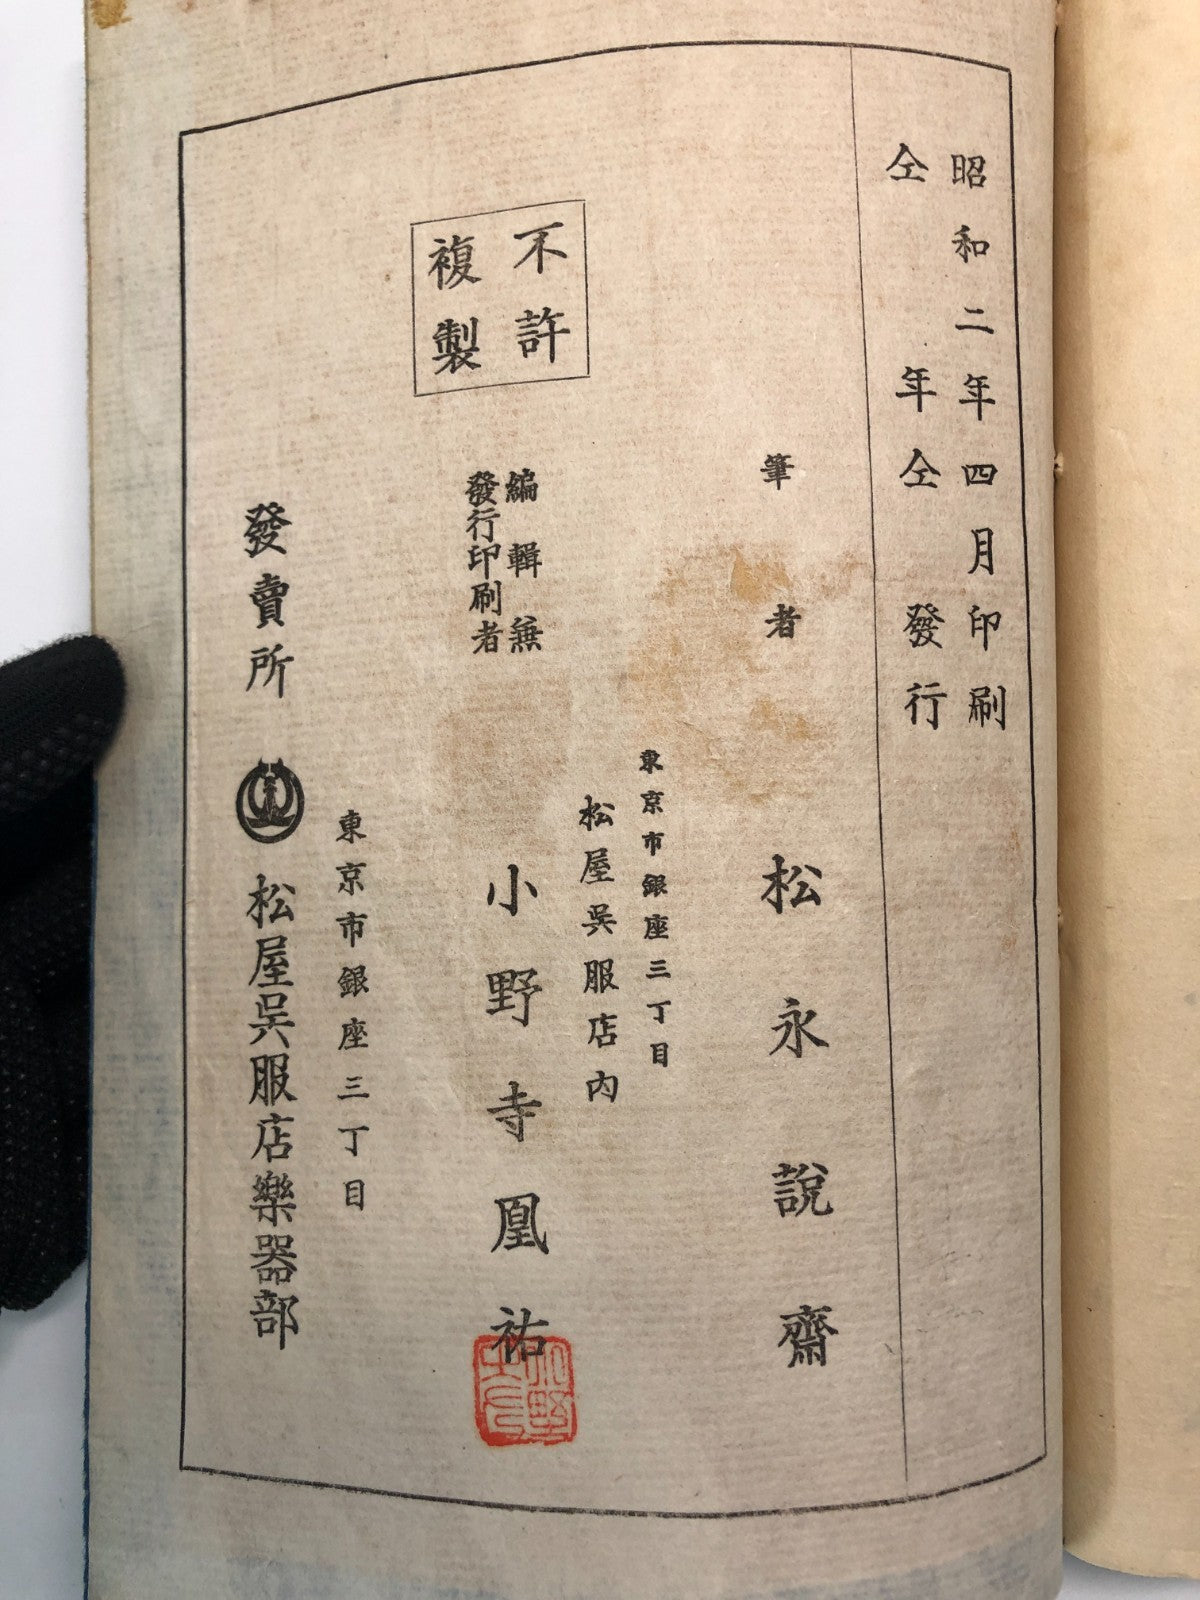 昭和二年四月印刷
仝年仝發行
筆者 松永說齋
東京市銀座三丁目
松屋吳服店内
編輯兼
發行印刷者
小野寺凰祐
不許
複製
東京市銀座三丁目
發賣所 松屋吳服店樂器部